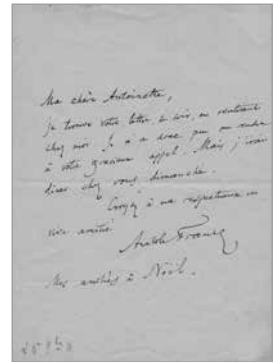 Ma chère Antoinette,
je trouve votre lettre ce soir, en rentrant
chez moi. Je n'ai donc pu me rendre
à votre gracieux appel. Mais j'irai
dîner chez vous dimanche.
Croyez à ma respectueuse et
vive amitié.
Anatole France
Mes amitiés à Noël.